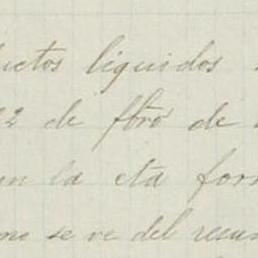 ductos liquidos
22 de fbro de
en la cta for
mo se ve del resu